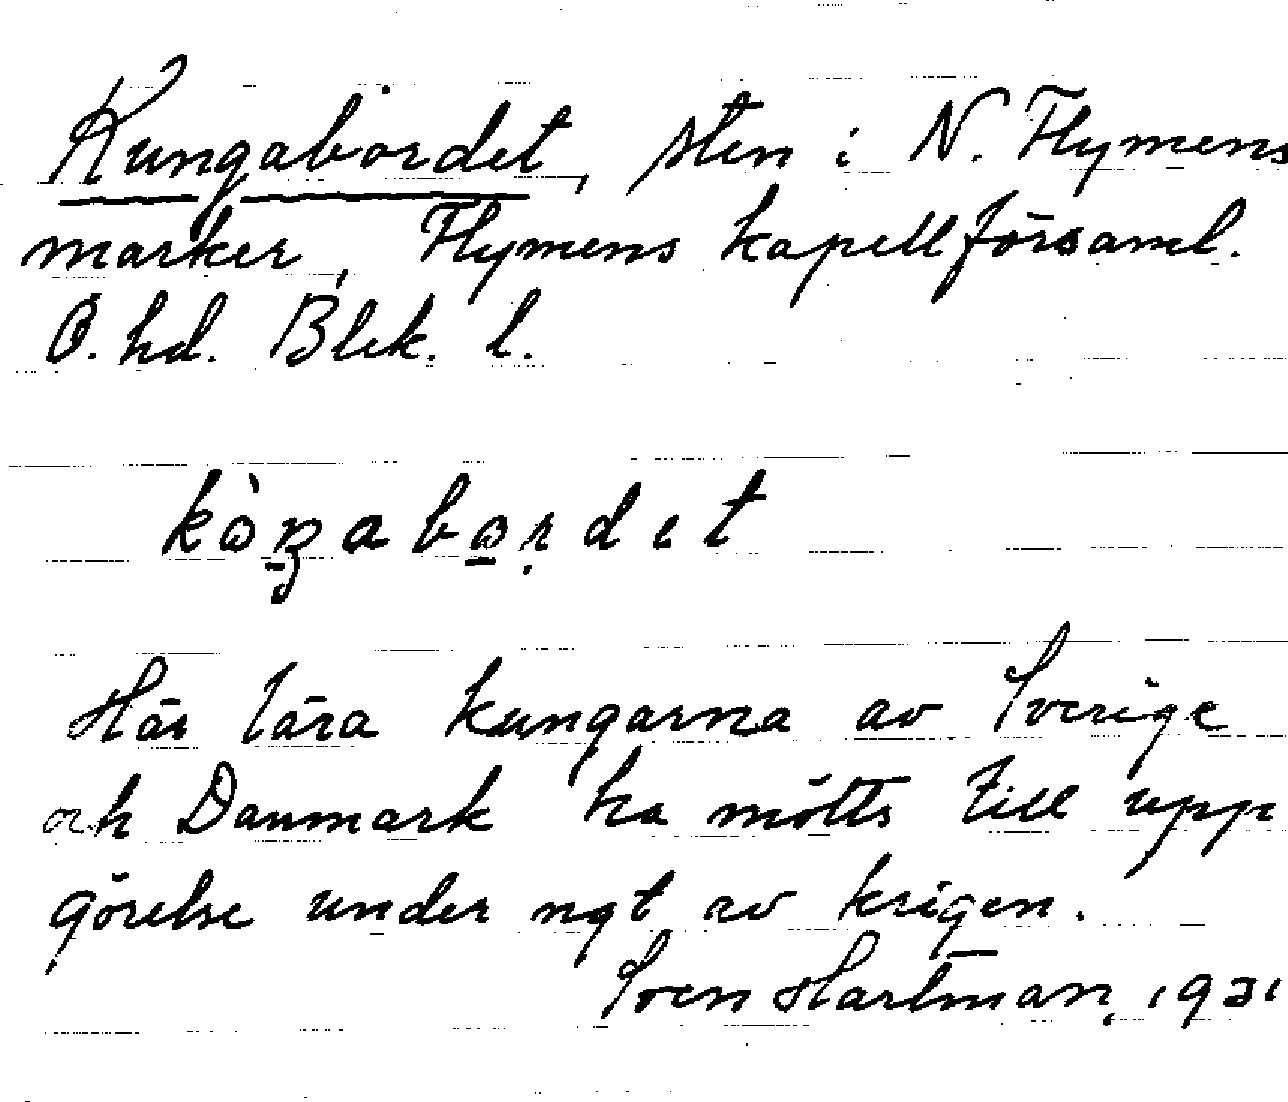 Kungabordet, sten i N. Flymens
marker, Flymens kapellförsaml.
Ö. hd. Blek. l.
Här lära kungarna av Sverige
och Danmark ha mötts till upp
görelse under ngt av krigen.
Sven Hartman, 1931